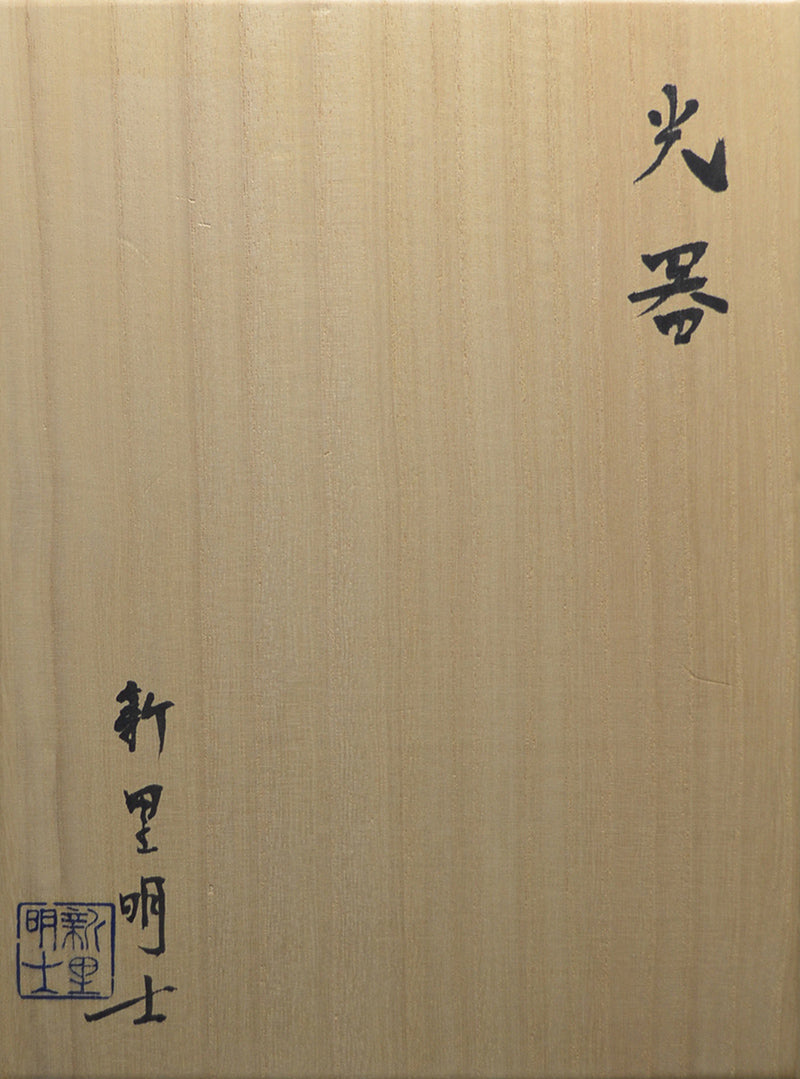 光器
新里明士
新里
明士